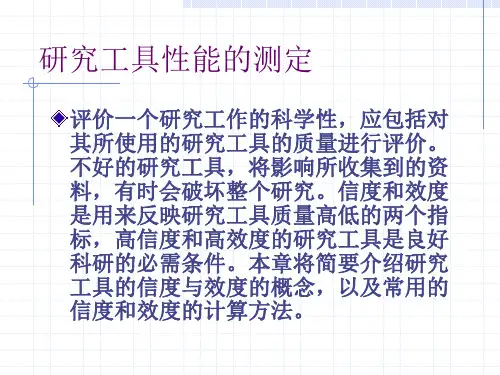 研究工具性能的测定
评价一个研究工作的科学性，应包括对
其所使用的研究工具的质量进行评价。
不好的研究工具，将影响所收集到的资
料，有时会破坏整个研究。信度和效度
是用来反映研究工具质量高低的两个指
标，高信度和高效度的研究工具是良好
科研的必需条件。本章将简要介绍研究
工具的信度与效度的概念，以及常用的
信度和效度的计算方法。